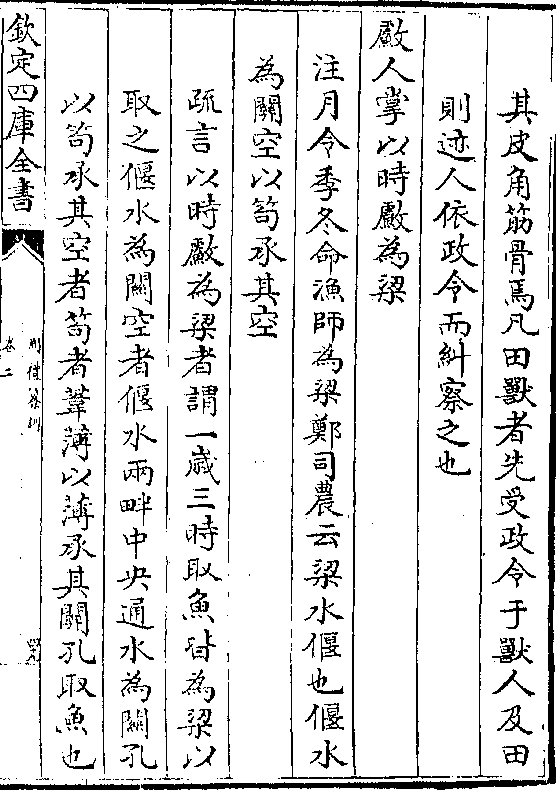 其皮角筋骨焉凡田獸者先受政令于獸人及田
則迹人依政令而糾察之也
𣤶人掌以時𣤶為梁
注月令季冬命漁師為梁鄭司農云梁水偃也偃水
為關空以笱承其空
疏言以時𣤶為梁者謂一歲三時取魚皆為梁以
取之偃水為關空者偃水兩畔中央通水為關孔
以笱承其空者笱者葦薄以薄承其關孔取魚也
欽定四庫全書
卷二